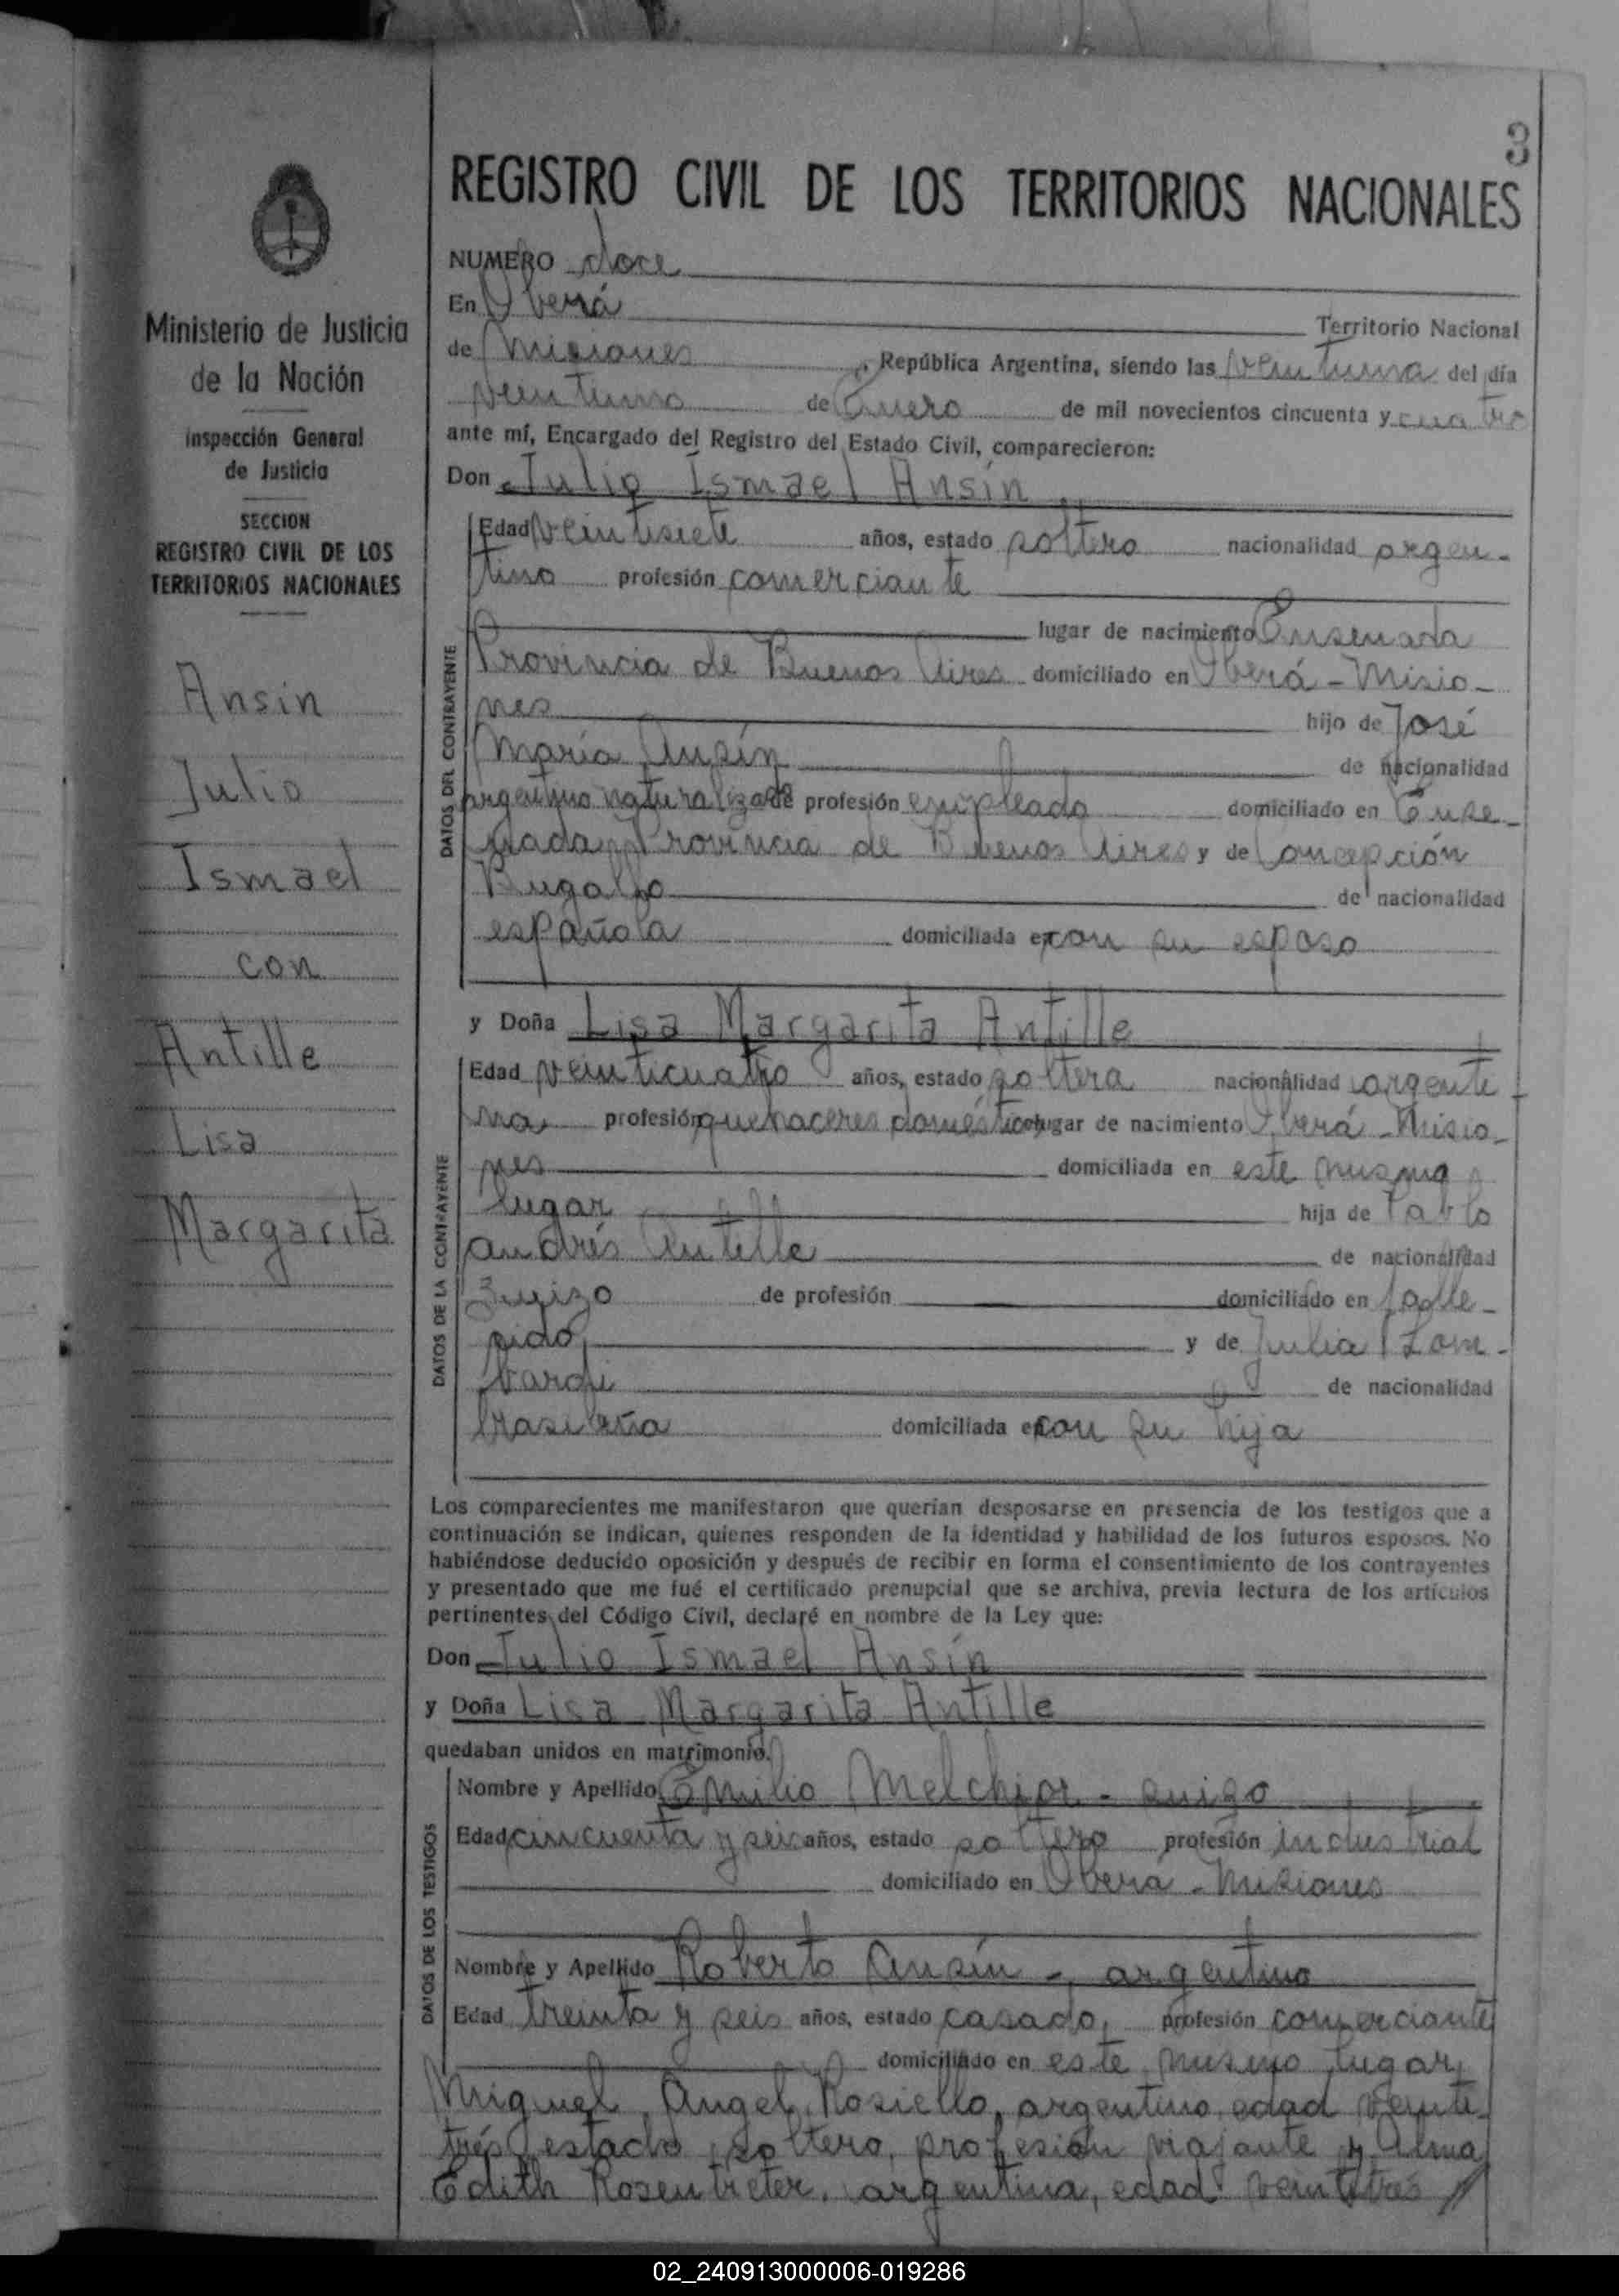 3
REGISTRO CIVIL DE LOS TERRITORIOS NACIONALES
Ministerio de Justicia
de la Nación
Inspección General
de Justicia
SECCION
REGISTRO CIVIL DE LOS
TERRITORIOS NACIONALES
Ansin
Julio
Ismael
con
Antille
Lisa
Margarita
NUMERO doce
En Oberá Territorio Nacional
de Misiones, República Argentina, siendo las veintiuna del día
veintiuno de Enero de mil novecientos cincuenta y cuatro
ante mí, Encargado del Registro del Estado Civil, comparecieron:
Don Julio Ismael Ansín
DATOS DEL CONTRAYENTE
Edad veintisiete años, estado soltero nacionalidad argen-
tino profesión comerciante
lugar de nacimiento Ensenada
Provincia de Buenos Aires domiciliado en Oberá - Misio-
nes hijo de José
María Ansín de nacionalidad
argentino naturalizado de profesión empleado domiciliado en Ense-
nada Provincia de Buenos Aires y de Concepción
Bugallo de nacionalidad
española domiciliada en con su esposo
y Doña Lisa Margarita Antille
DATOS DE LA CONTRAYENTE
Edad veinticuatro años, estado soltera nacionalidad argenti-
na profesión quehaceres domésticos lugar de nacimiento Oberá - Misio-
nes domiciliada en este mismo
lugar hija de Pablo
Andrés Antille de nacionalidad
Suizo de profesión domiciliado en falle-
cido y de Julia Lom-
bardi de nacionalidad
brasileña domiciliada en con su hija
Los comparecientes me manifestaron que querían desposarse en presencia de los testigos que a
continuación se indican, quienes responden de la identidad y habilidad de los futuros esposos. No
habiéndose deducido oposición y después de recibir en forma el consentimiento de los contrayentes
y presentado que me fué el certificado prenupcial que se archiva, previa lectura de los artículos
pertinentes del Código Civil, declaré en nombre de la Ley que:
Don Julio Ismael Ansín
y Doña Lisa Margarita Antille
quedaban unidos en matrimonio.
DATOS DE LOS TESTIGOS
Nombre y Apellido Emilio Melchior - suizo
Edad cincuenta y seis años, estado soltero profesión industrial
domiciliado en Oberá - Misiones
Nombre y Apellido Roberto Ansín - argentino
Edad treinta y seis años, estado casado, profesión comerciante
domiciliado en este mismo lugar,
Miguel Angel Rosiello, argentino, edad veinti-
trés, estado soltero, profesión viajante y Alma
Edith Rosentreter, argentina, edad veintitrés
02_240913000006-019286